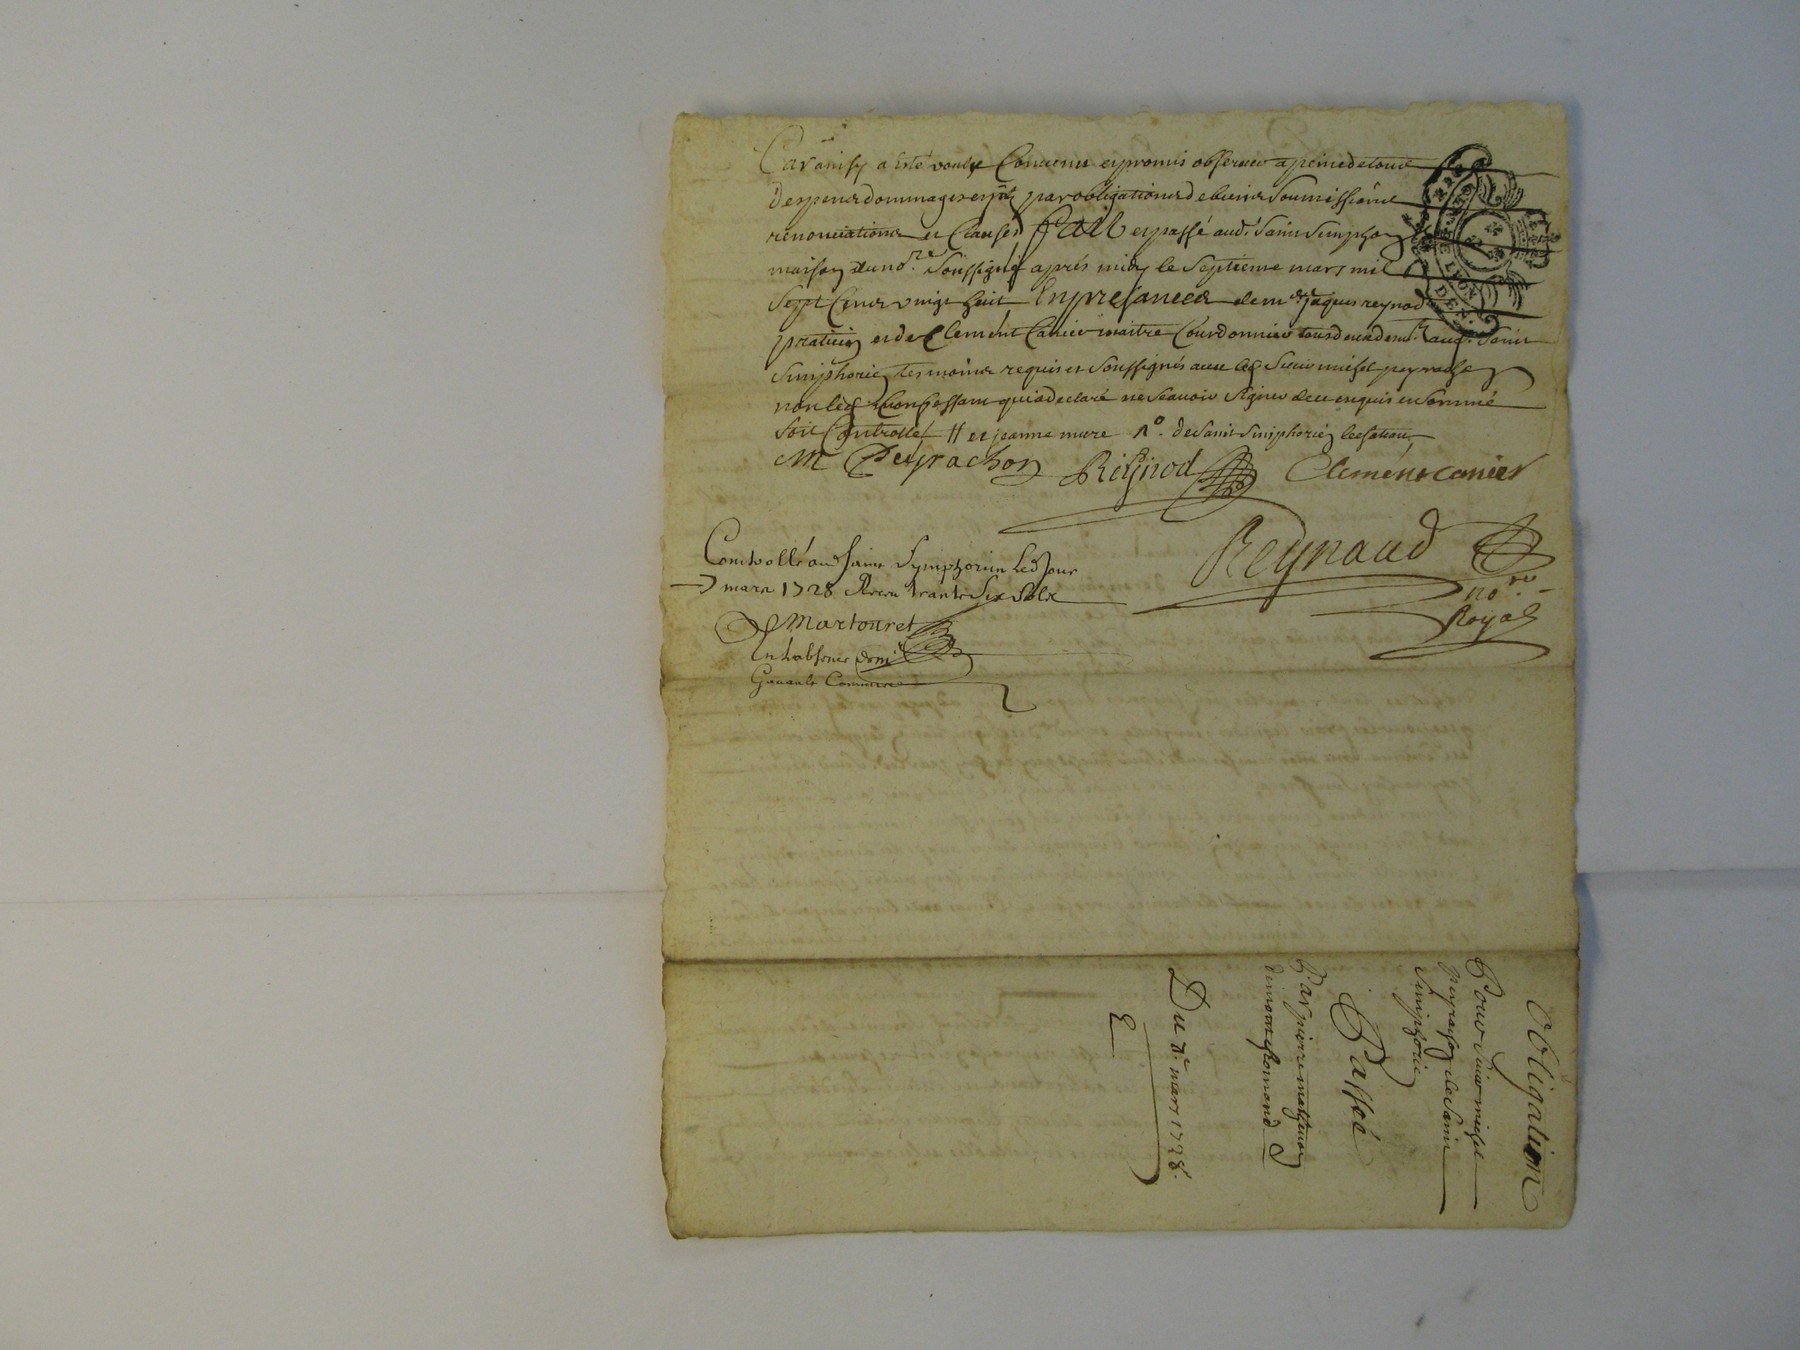 Car ainsy a esté voulu Convenu et promis observer a peine de tous
despens dommages et jnts par obligations de biens soumissions
renonciations et clauses fait et passé aud. Saint Simphorien
maison du no.re Soussigné après midy le Septieme mars mil
Sept Cens vingt huit En presances de m.e Jaques reynod
praticien et de Clement Canier maitre Courdonnier tous deux dem.t aud. Saint
Simphorien tesmoins requis et Soussignés avec led Sieur michel peyrachon
non led Confessant qui a declaré ne Scavoir Signer de ce enquis et Sommé
Soit Controllé // et jeanne mure no. de Saint Simphorien
M Peyrachon Reignod Clement canier
Reynaud
no.re
Royal
Controllé aud Saint Symphorien Led Jour
7 mars 1728 Receu trante Six Solz
Martouret
En labsence de m.r
Gavault Commis
Obligation
Pour Sieur michel
peyrachon de Saint
Simphorien
Passée
Par pierre mathevon
de montesromond
Du 7.e mars 1728.